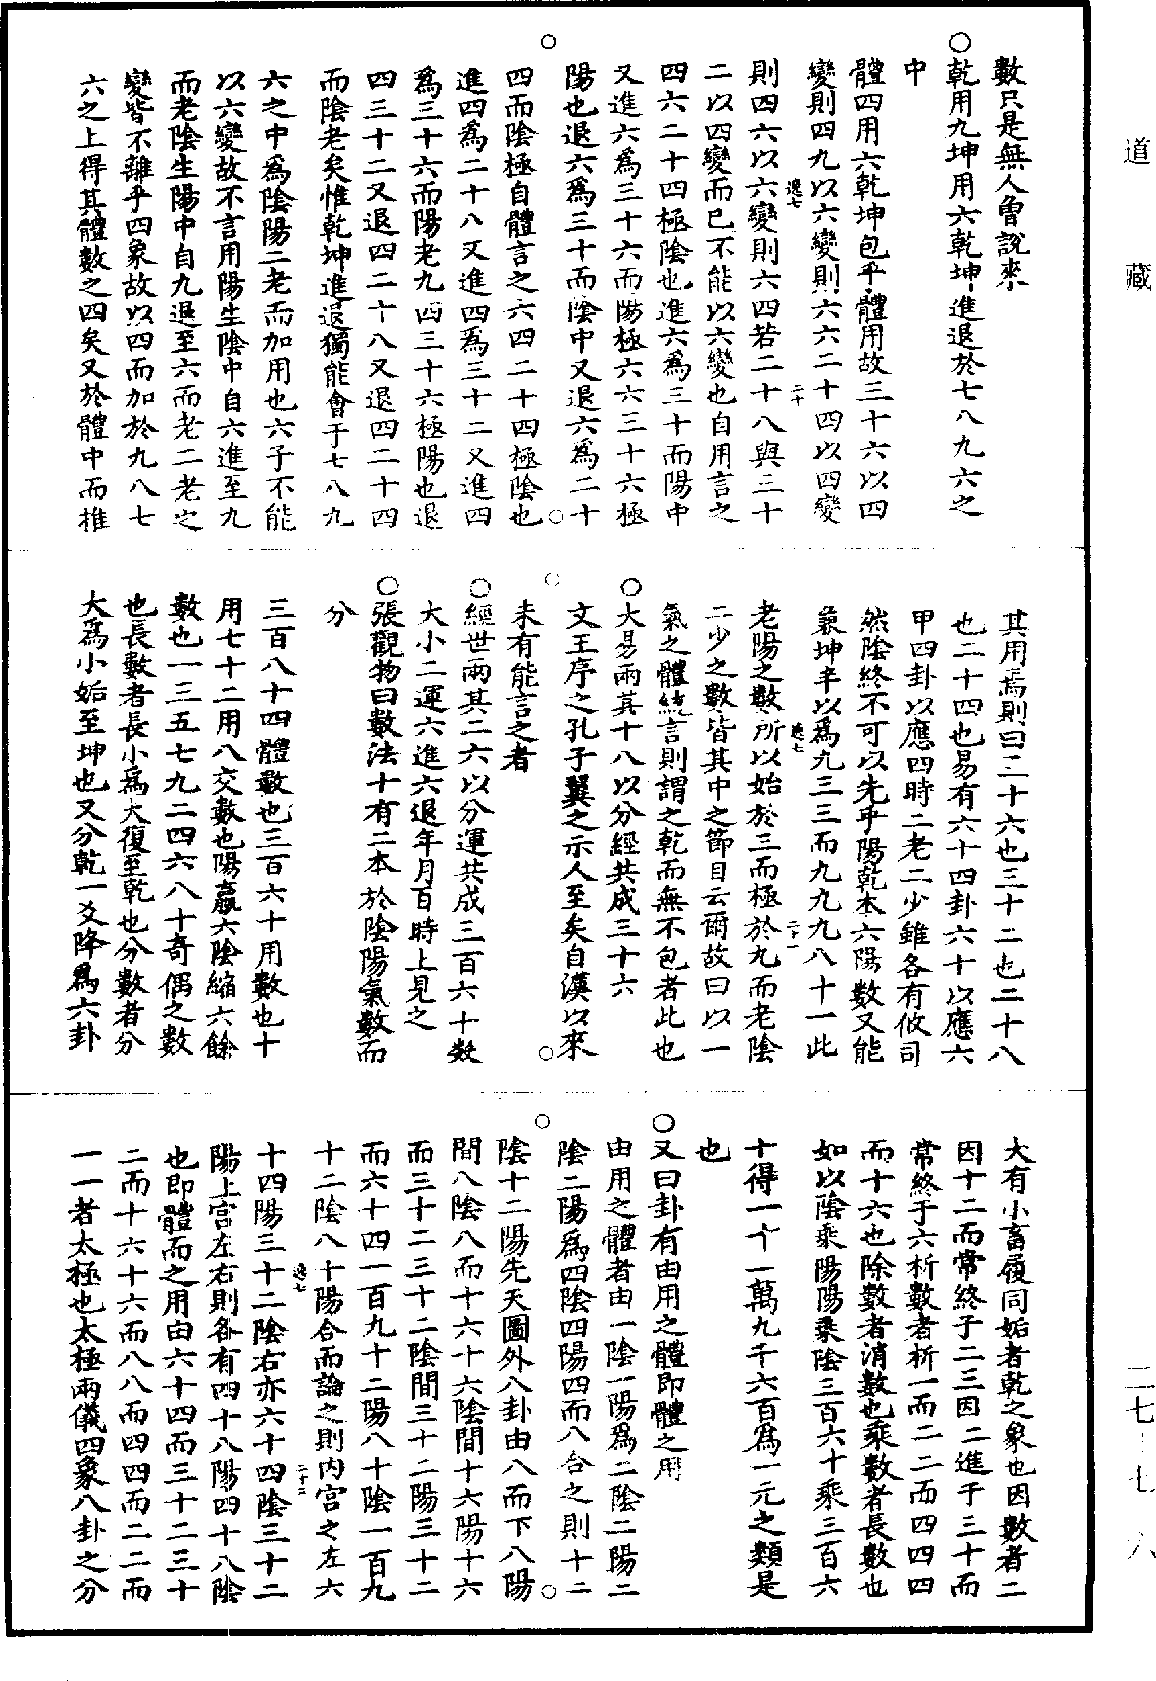 數只是無人曾說來
○乾用九坤用六乾坤進退於七八九六之
中
體四用六乾坤包乎體用故三十六以四
變則四九以六變則六六二十四以四變
逸七
二十
則四六以六變則六四若二十八與三十
二以四變而已不能以六變也自用言之
四六二十四極陰也進六爲三十而陽中
又進六爲三十六而陽極六六三十六極
陽也退六爲三十而陰中又退六爲二十
四而陰極自體言之六四二十四極陰也
進四爲二十八又進四爲三十二又進四
爲三十六而陽老九四三十六極陽也退
四三十二又退四二十八又退四二十四
而陰老矣惟乾坤進退獨能會于七八九
六之中爲陰陽二老而加用也六子不能
以六變故不言用陽生陰中自六進至九
而老陰生陽中自九退至六而老二老之
變皆不離乎四象故以四而加於九八七
六之上得其體數之四矣又於體中而推
其用焉則曰三十六也三十二也二十八
也二十四也易有六十四卦六十以應六
甲四卦以應四時二老二少雖各有攸司
然陰終不可以先乎陽乾本六陽數又能
兼坤半以爲九三三而九九九八十一此
逸七
二十一
老陽之數所以始於三而極於九而老陰
二少之數皆其中之節目云爾故曰以一
氣之體統言則謂之乾而無不包者此也
○大易兩其十八以分經共成三十六
文王序之孔子翼之示人至矣自漢以來
未有能言之者
○經世兩其二六以分運共成三百六十數
大小二運六進六退年月百時上見之
○張觀物曰數法十有二本於陰陽氣數而
分
三百八十四體數也三百六十用數也十
用七十二用八交數也陽贏六陰縮六餘
數也一三五七九二四六八十奇偶之數
也長數者長小爲大復至乾也分數者分
大爲小姤至坤也又分乾一爻降爲六卦
大有小畜履同姤者乾之象也因數者二
因十二而常終于二三因二進于三十而
常終于六析數者析一而二二而四四四
而十六也除數者消數也乘數者長數也
如以陰乘陽陽乘陰三百六十乘三百六
十得一十一萬九千六百爲一元之類是
也
○又曰卦有由用之體即體之用
由用之體者由一陰一陽爲二陰二陽二
陰二陽爲四陰四陽四而八合之則十二
陰十二陽先天圖外八卦由八而下八陽
間八陰八而十六十六陰間十六陽十六
而三十二三十二陰間三十二陽三十二
而六十四一百九十二陽八十陰一百九
十二陰八十陽合而論之則内宫之左六
逸七
二十二
十四陽三十二陰右亦六十四陰三十二
陽上宫左右則各有四十八陽四十八陰
也即體而之用由六十四而三十二三十
二而十六十六而八八而四四而二二而
一一者太極也太極兩儀四象八卦之分
道藏
二七-七六